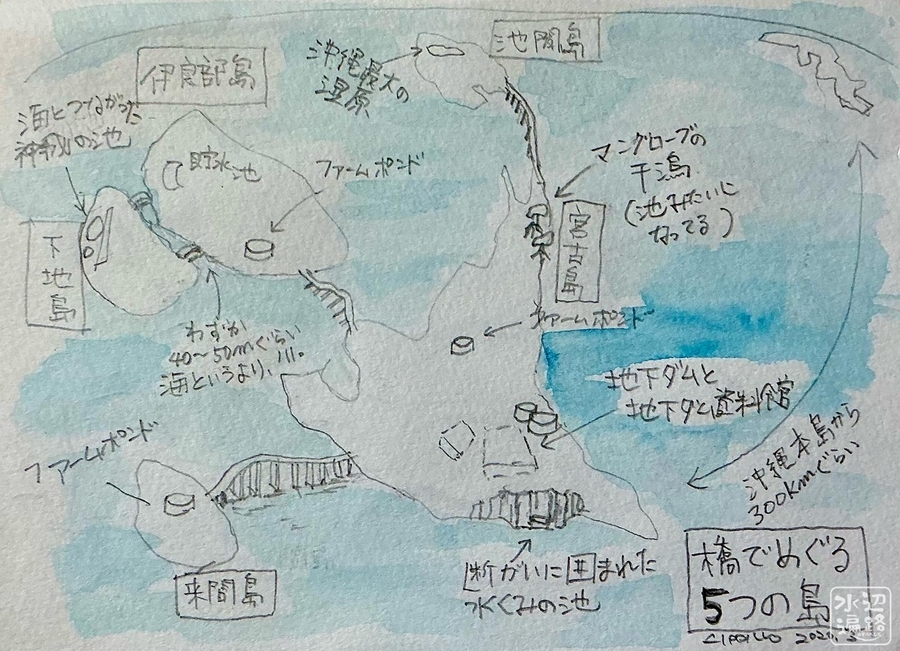 池間島
沖縄最大の
湿原
伊良部島
海とつながった
神秘の池
貯水池
ファームポンド
マングローブの
干潟
(池みたいに
なってる)
宮古島
下地島
わずか
40〜50mぐらい
海というより、川。
ファームポンド
地下ダムと
地下ダム資料館
沖縄本島から
300kmぐらい
ファームポンド
来間島
断がいに囲まれた
水くみの池
橋でめぐる
5つの島
水辺
遍路